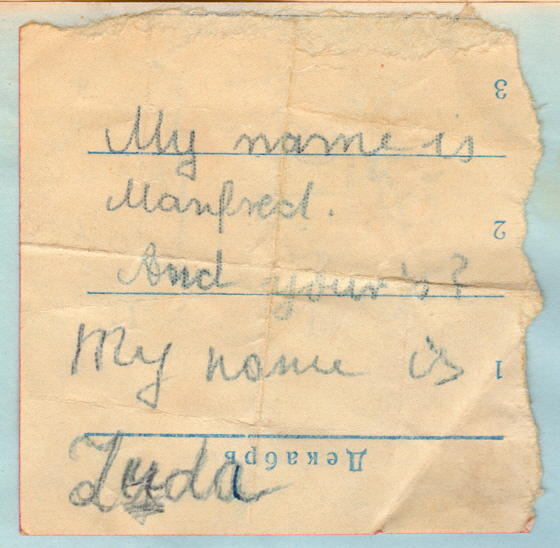 3
My name is
Manfred.
2
And your's?
My name is
1
Декабрь
Luda